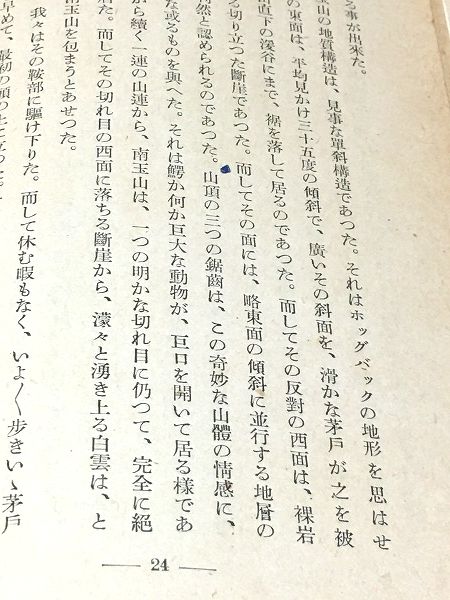 る事が出來た。
山の地質構造は、見事な單斜構造であつた。それはホッグバックの地形を思はせ
の東面は、平均見かけ三十五度の傾斜で、廣いその斜面を、滑かな茅戸が之を被
直下の溪谷にまで、裾を落して居るのであつた。而してその反對の西面は、裸岩
る切り立つた斷崖であつた。而してその面には、略東面の傾斜に並行する地層の
然と認められるのであつた。山頂の三つの鋸齒は、この奇妙な山體の情感に、
な或るものを與へた。それは鰐か何か巨大な動物が、巨口を開いて居る樣であ
から續く一連の山連から、南玉山は、一つの明かな切れ目に仍つて、完全に絶
た。而してその切れ目の西面に落ちる斷崖から、濛々と湧き上る白雲は、と
南玉山を包まうとあせつた。
我々はその鞍部に驅け下りた。而して休む暇もなく、いよ〱步きいゝ茅戸
早めて、最初の頭の上に立つた。
24